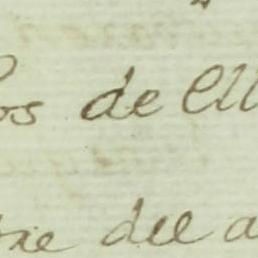 os de Ell
tre del a